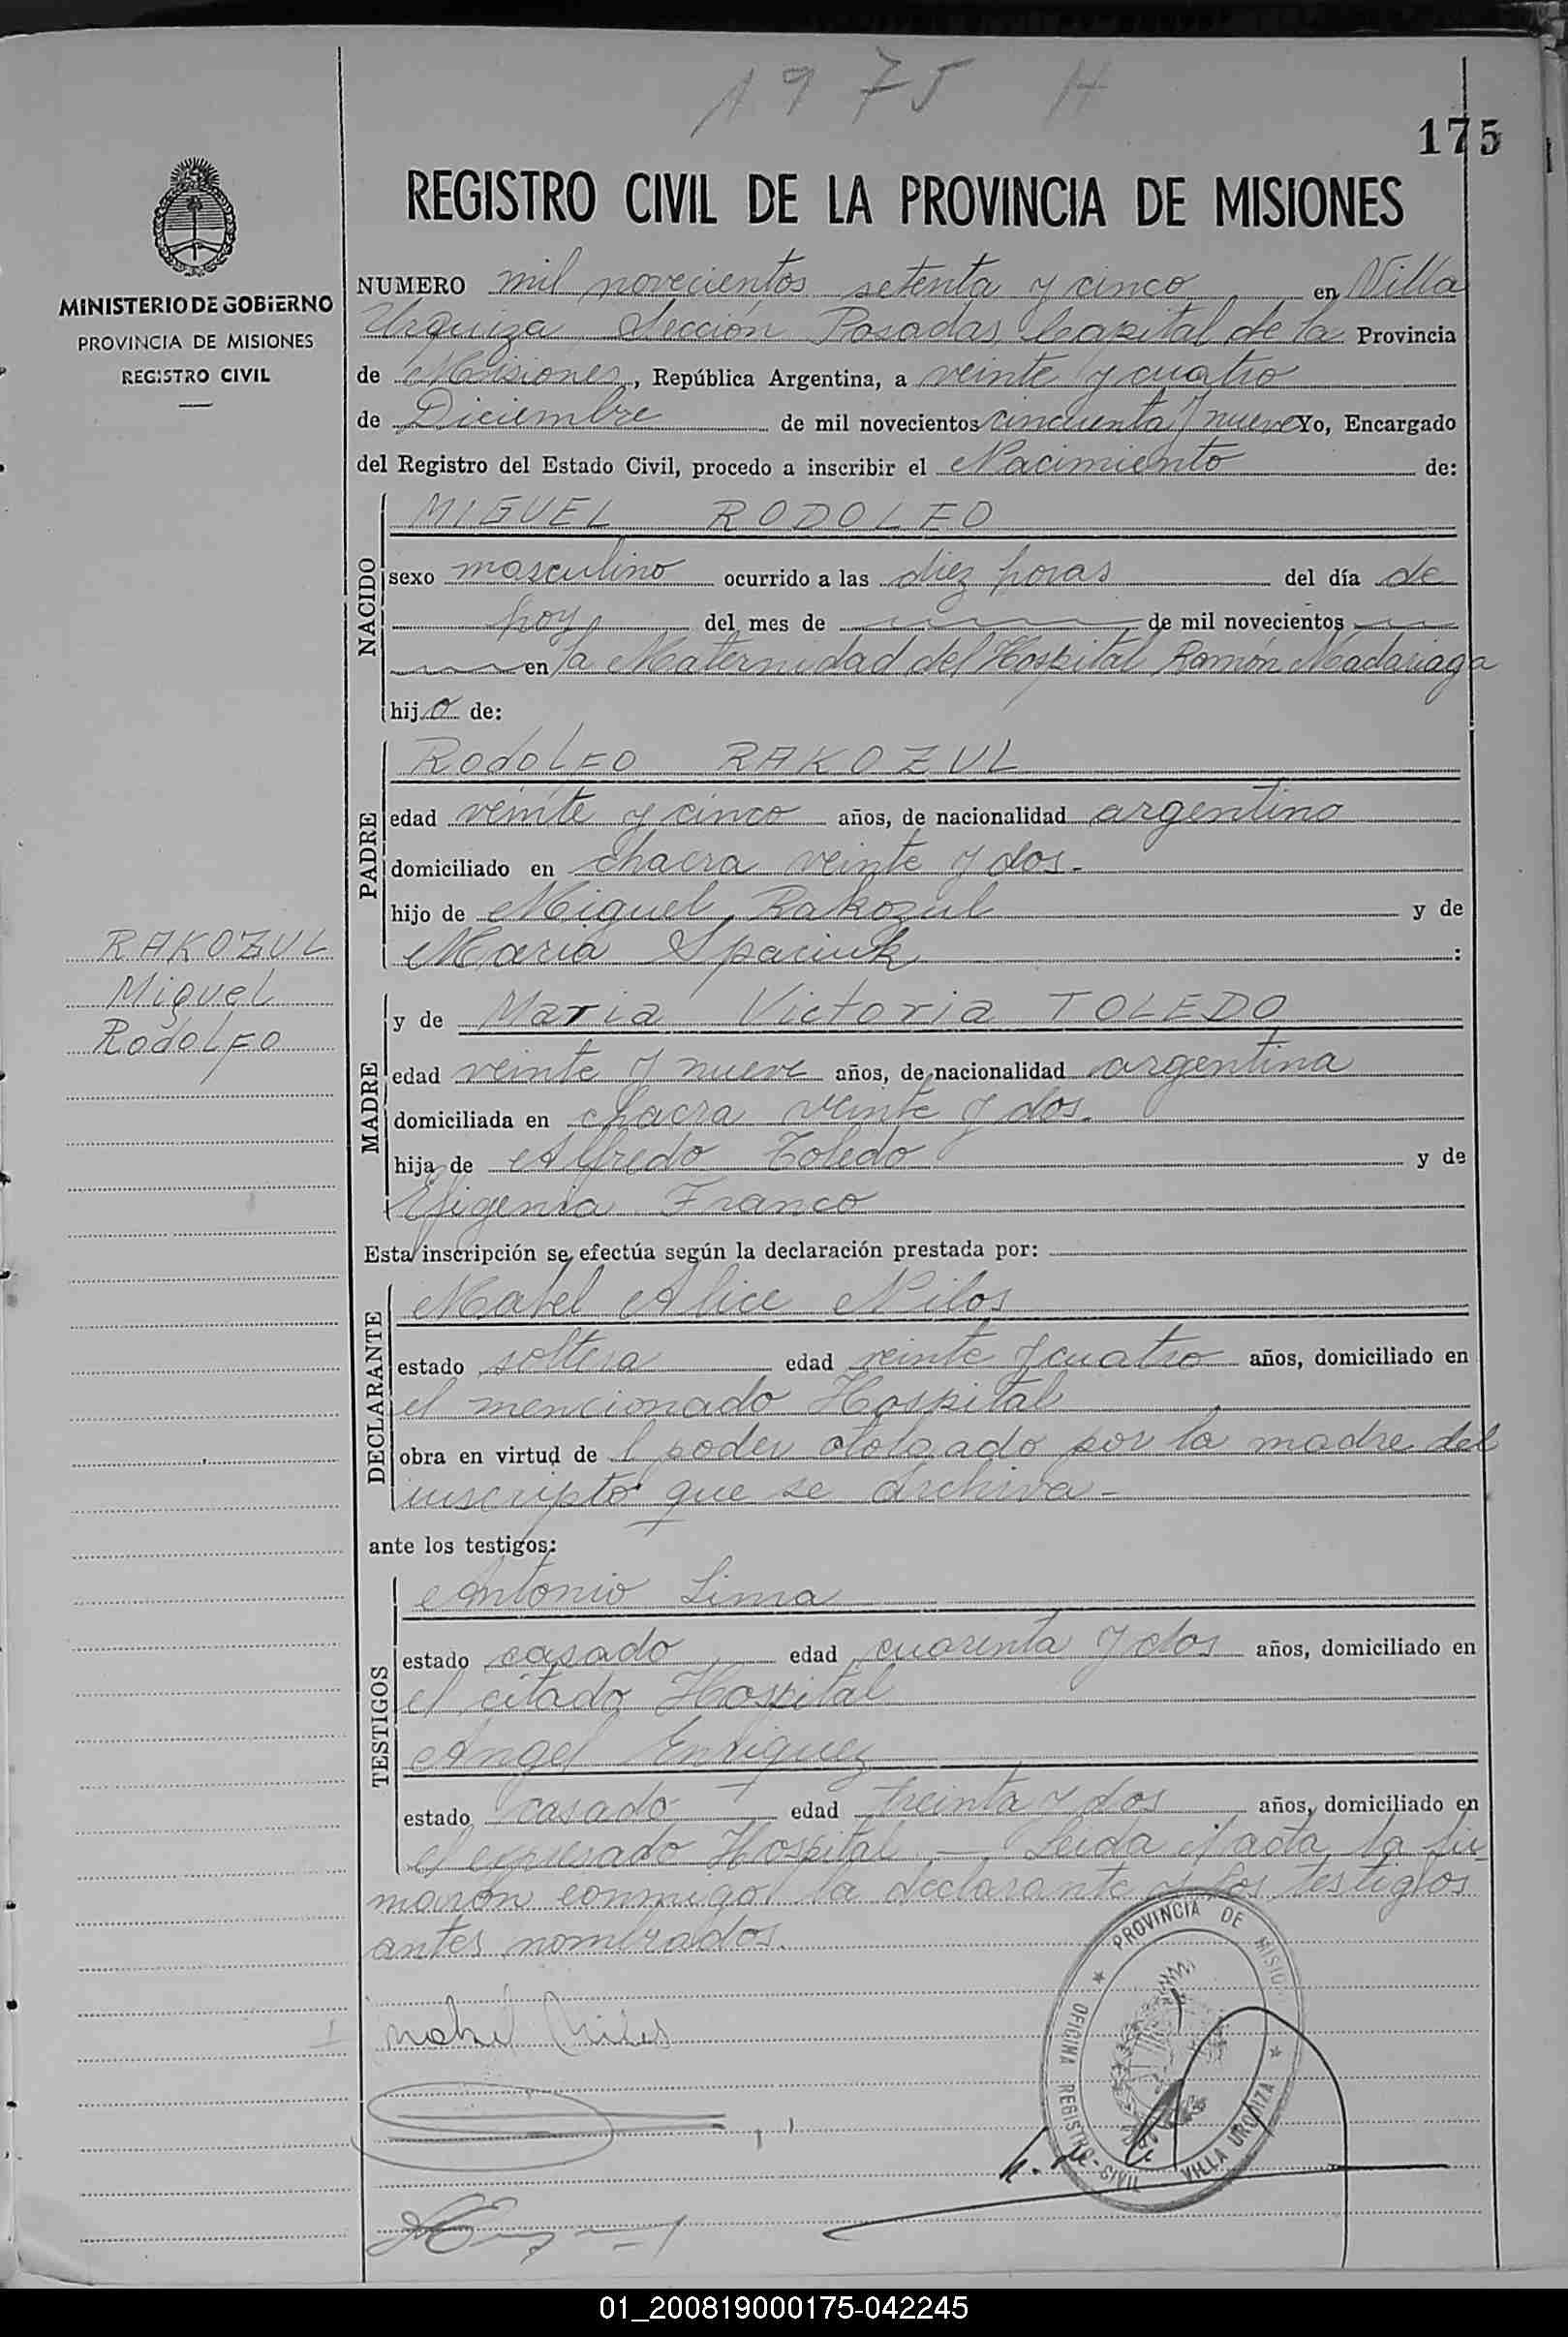 1975 H
175
MINISTERIO DE GOBIERNO
PROVINCIA DE MISIONES
REGISTRO CIVIL
REGISTRO CIVIL DE LA PROVINCIA DE MISIONES
NUMERO mil novecientos setenta y cinco en Villa
Urquiza Sección Posadas, Capital de la Provincia
de Misiones, República Argentina, a veinte y cuatro
de Diciembre de mil novecientos cincuenta y nueve Yo, Encargado
del Registro del Estado Civil, procedo a inscribir el Nacimiento de:
NACIDO
MIGUEL RODOLFO
sexo masculino ocurrido a las diez horas del día de
hoy del mes de de mil novecientos
en la Maternidad del Hospital Ramón Madariaga
hijo de:
PADRE
RodoLFO RAKOZUL
edad veinte y cinco años, de nacionalidad argentino
domiciliado en chacra veinte y dos.-
hijo de Miguel Rakozul y de
Maria Spaciuk :
RAKOZUL
Miguel
RodoLFO
MADRE
y de Maria Victoria TOLEDO
edad veinte y nueve años, de nacionalidad argentina
domiciliada en chacra veinte y dos.
hija de Alfredo Toledo y de
Efigenia Franco
Esta inscripción se efectúa según la declaración prestada por:
DECLARANTE
Mabel Alice Nilos
estado soltera edad veinte y cuatro años, domiciliado en
el mencionado Hospital
obra en virtud de l poder otolgado por la madre del
inscripto que se archiva-
ante los testigos:
TESTIGOS
Antonio Lima
estado casado edad cuarenta y dos años, domiciliado en
el citado Hospital
Angel Enriquez
estado casado edad treinta y dos años, domiciliado en
el expresado Hospital. — Leida el acta, la fir-
maron conmigo, la declarante y los testigos
antes nombrados.
PROVINCIA DE MISIO
OFICINA REGISTRO CIVIL VILLA URQUIZA
01_200819000175-042245